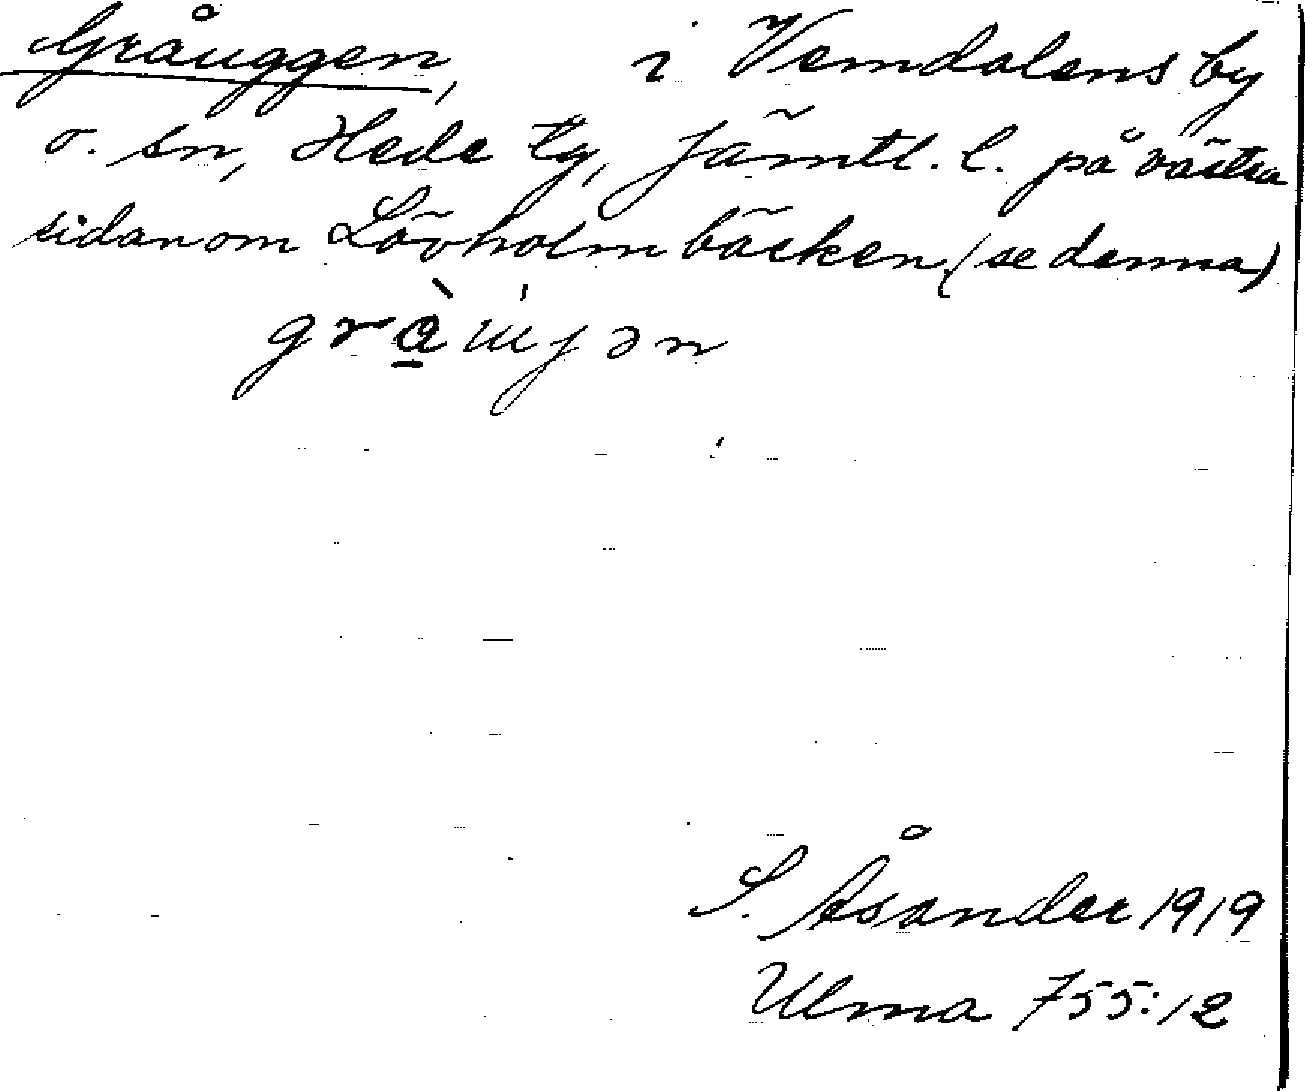 Gråuggen, i Vemdalens by
o. sn, Hede tg, Jämtl. l. på västra
sidan om Lövholmbäcken (se denna)
S. Åsander 1919
Ulma 755:12